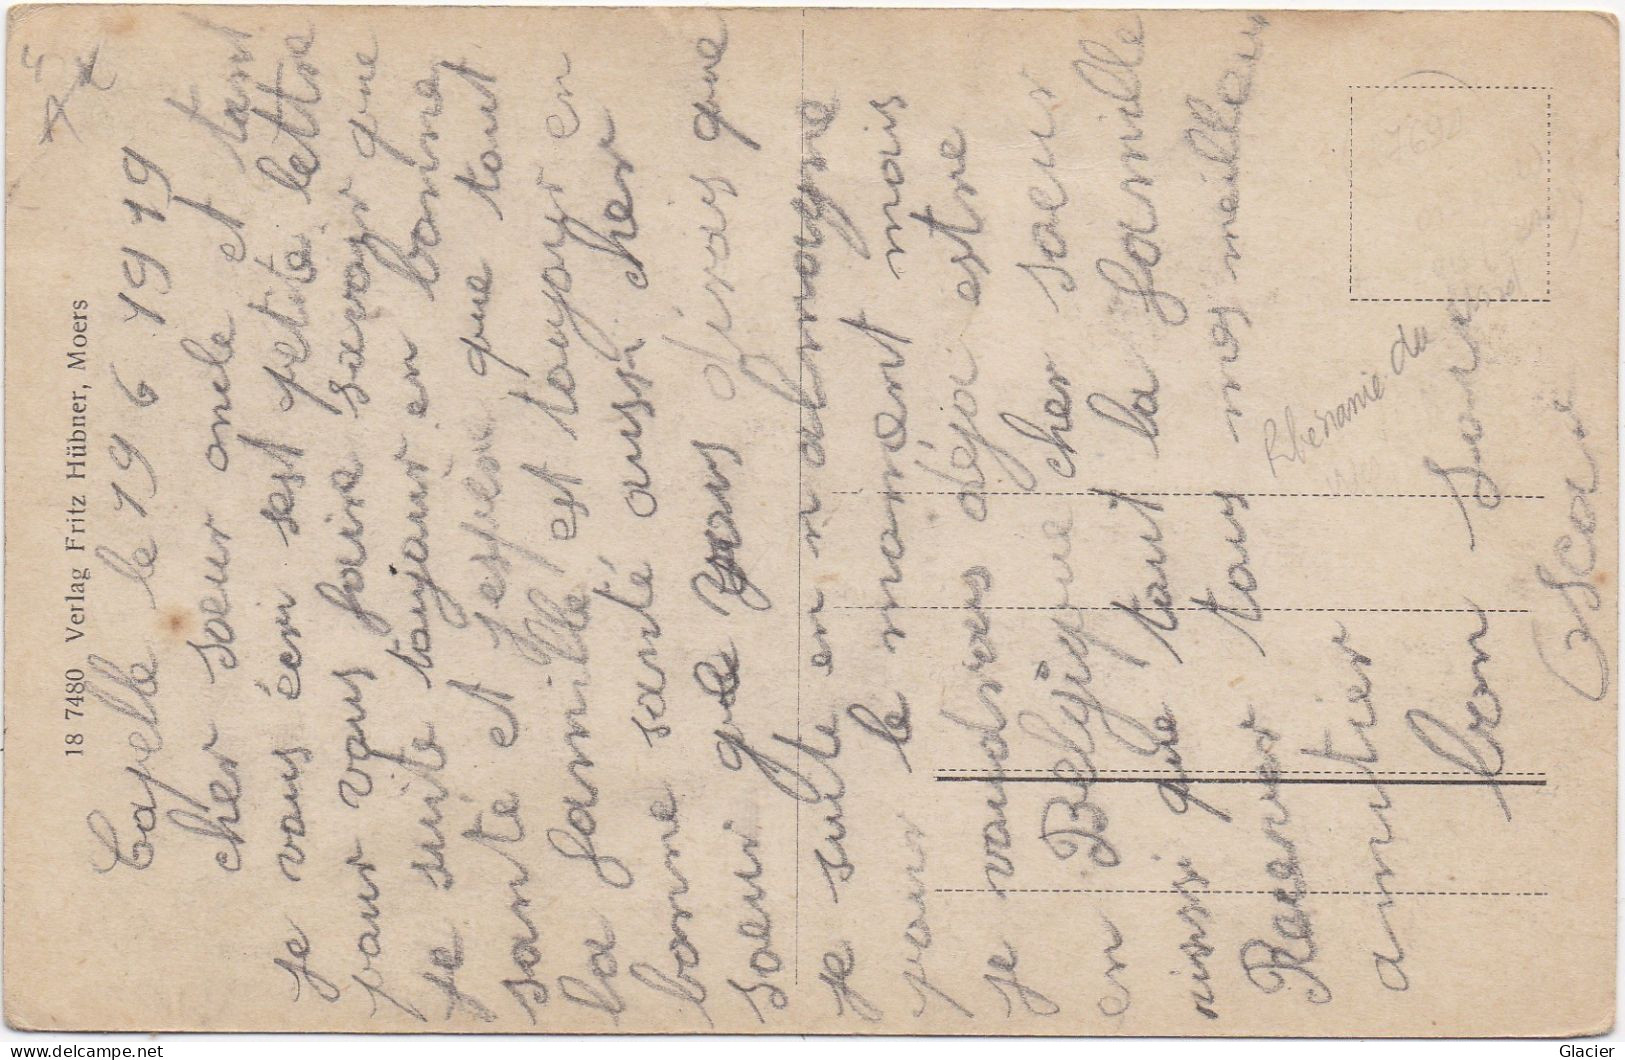 Capelle le 19 6 1919
cher soeur oncle et tant
je vous écri set petite lettre
pour vous faire savoir que
je suite toujour en bonne
santé et j'espere que tout
la famille est toujour en
bonne santé aussi cher
soeur je vous dirais que
je suite en n almagne
pour le moment mais
je vaudrais déja estre
en Belgique cher soeur
ainsi que tout la famille
Recever tous mes meilleur
amitier
bon
Oscar
18 7480 Verlag Fritz Hübner, Moers
Rhénanie du
Glacier